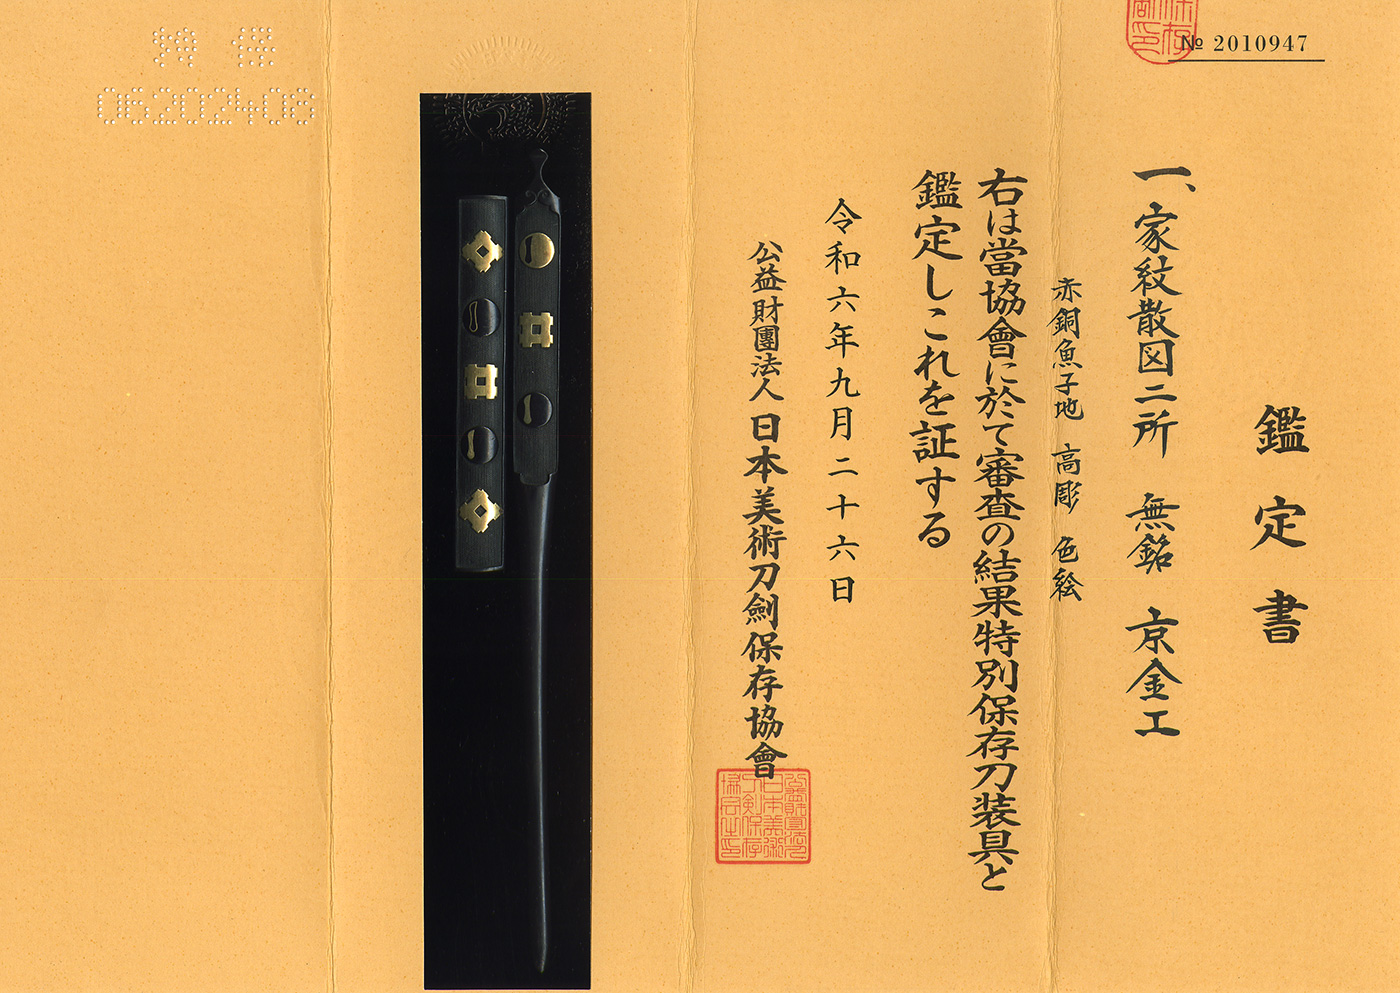 № 2010947
鑑定書
一、家紋散図二所 無銘 京金工
赤銅魚子地 高彫 色絵
右は當協會に於て審査の結果特別保存刀装具と
鑑定しこれを証する
令和六年九月二十六日
公益財團法人 日本美術刀劍保存協會
公益財団法人日本美術刀剣保存協会之印
特保
06202408